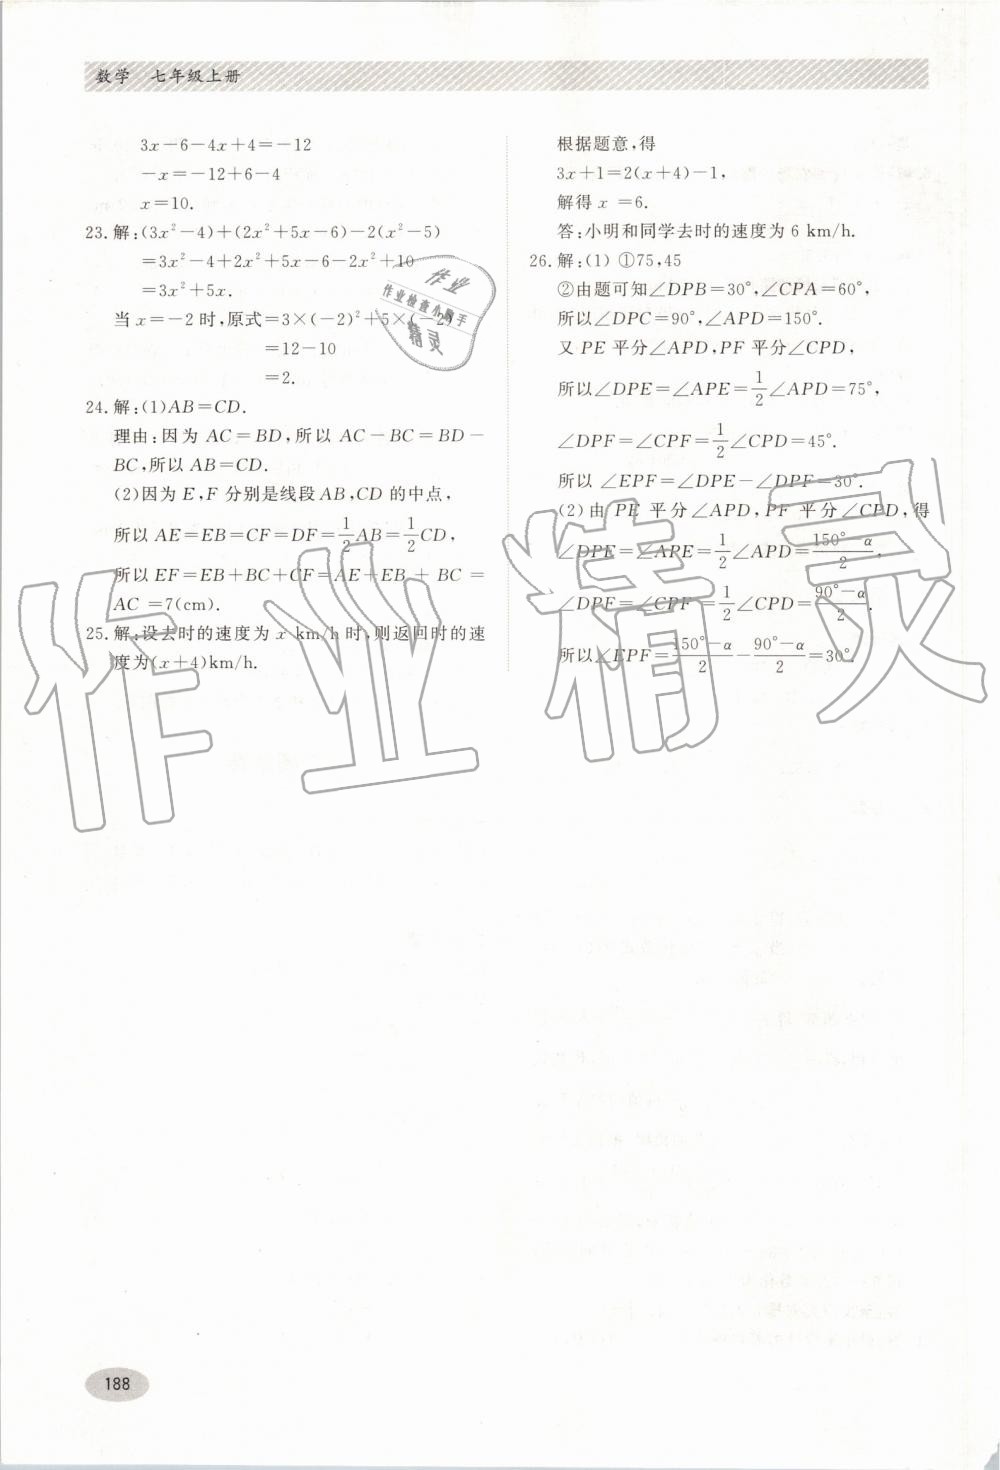 数学 七年级上册
3x-6-4x+4=-12
-x=-12+6-4
x=10.
23.解:(3x²-4)+(2x²+5x-6)-2(x²-5)
=3x²-4+2x²+5x-6-2x²+10
=3x²+5x.
当 x=-2 时,原式=3×(-2)²+5×(-2)
=12-10
=2.
24.解:(1)AB=CD.
理由:因为 AC=BD,所以 AC-BC=BD-
BC,所以 AB=CD.
(2)因为 E,F 分别是线段 AB,CD 的中点,
所以 AE=EB=CF=DF=1/2AB=1/2CD,
所以 EF=EB+BC+CF=AE+EB+BC=
AC=7(cm).
25.解:设去时的速度为 x km/h 时,则返回时的速
度为(x+4)km/h.
根据题意,得
3x+1=2(x+4)-1,
解得 x =6.
答:小明和同学去时的速度为 6 km/h.
26.解:(1) ①75,45
②由题可知∠DPB=30°,∠CPA=60°,
所以∠DPC=90°,∠APD=150°.
又 PE 平分∠APD,PF 平分∠CPD,
所以∠DPE=∠APE=1/2∠APD=75°,
∠DPF=∠CPF=1/2∠CPD=45°.
所以 ∠EPF=∠DPE-∠DPF=30°.
(2)由 PE 平分∠APD,PF 平分∠CPD,得
∠DPE=∠APE=1/2∠APD=(150°-α)/2,
∠DPF=∠CPF=1/2∠CPD=(90°-α)/2.
所以∠EPF=(150°-α)/2-(90°-α)/2=30°.
作业
作业检查小助手
精灵
作业精灵
188